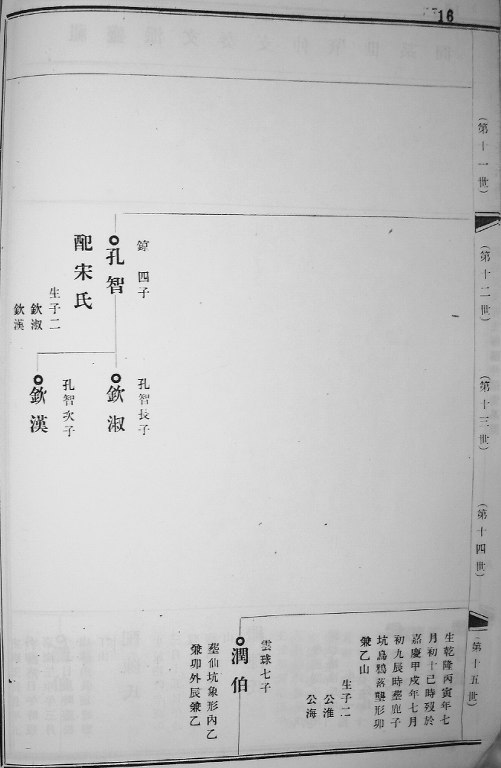 16
(第十一世)
(第十二世)
四子
孔智
配宋氏
生子二
欽淑
欽漢
(第十三世)
孔智長子
欽淑
孔智次子
欽漢
(第十四世)
第十五世)
生乾隆丙寅年七
月初十巳時歿於
嘉慶甲戌年七月
初九辰時塟鹿子
坑烏鴉落壟形卯
兼乙山
生子二
公淮
公海
雲球七子
潤伯
塟仙坑象形內乙
兼卯外辰兼乙